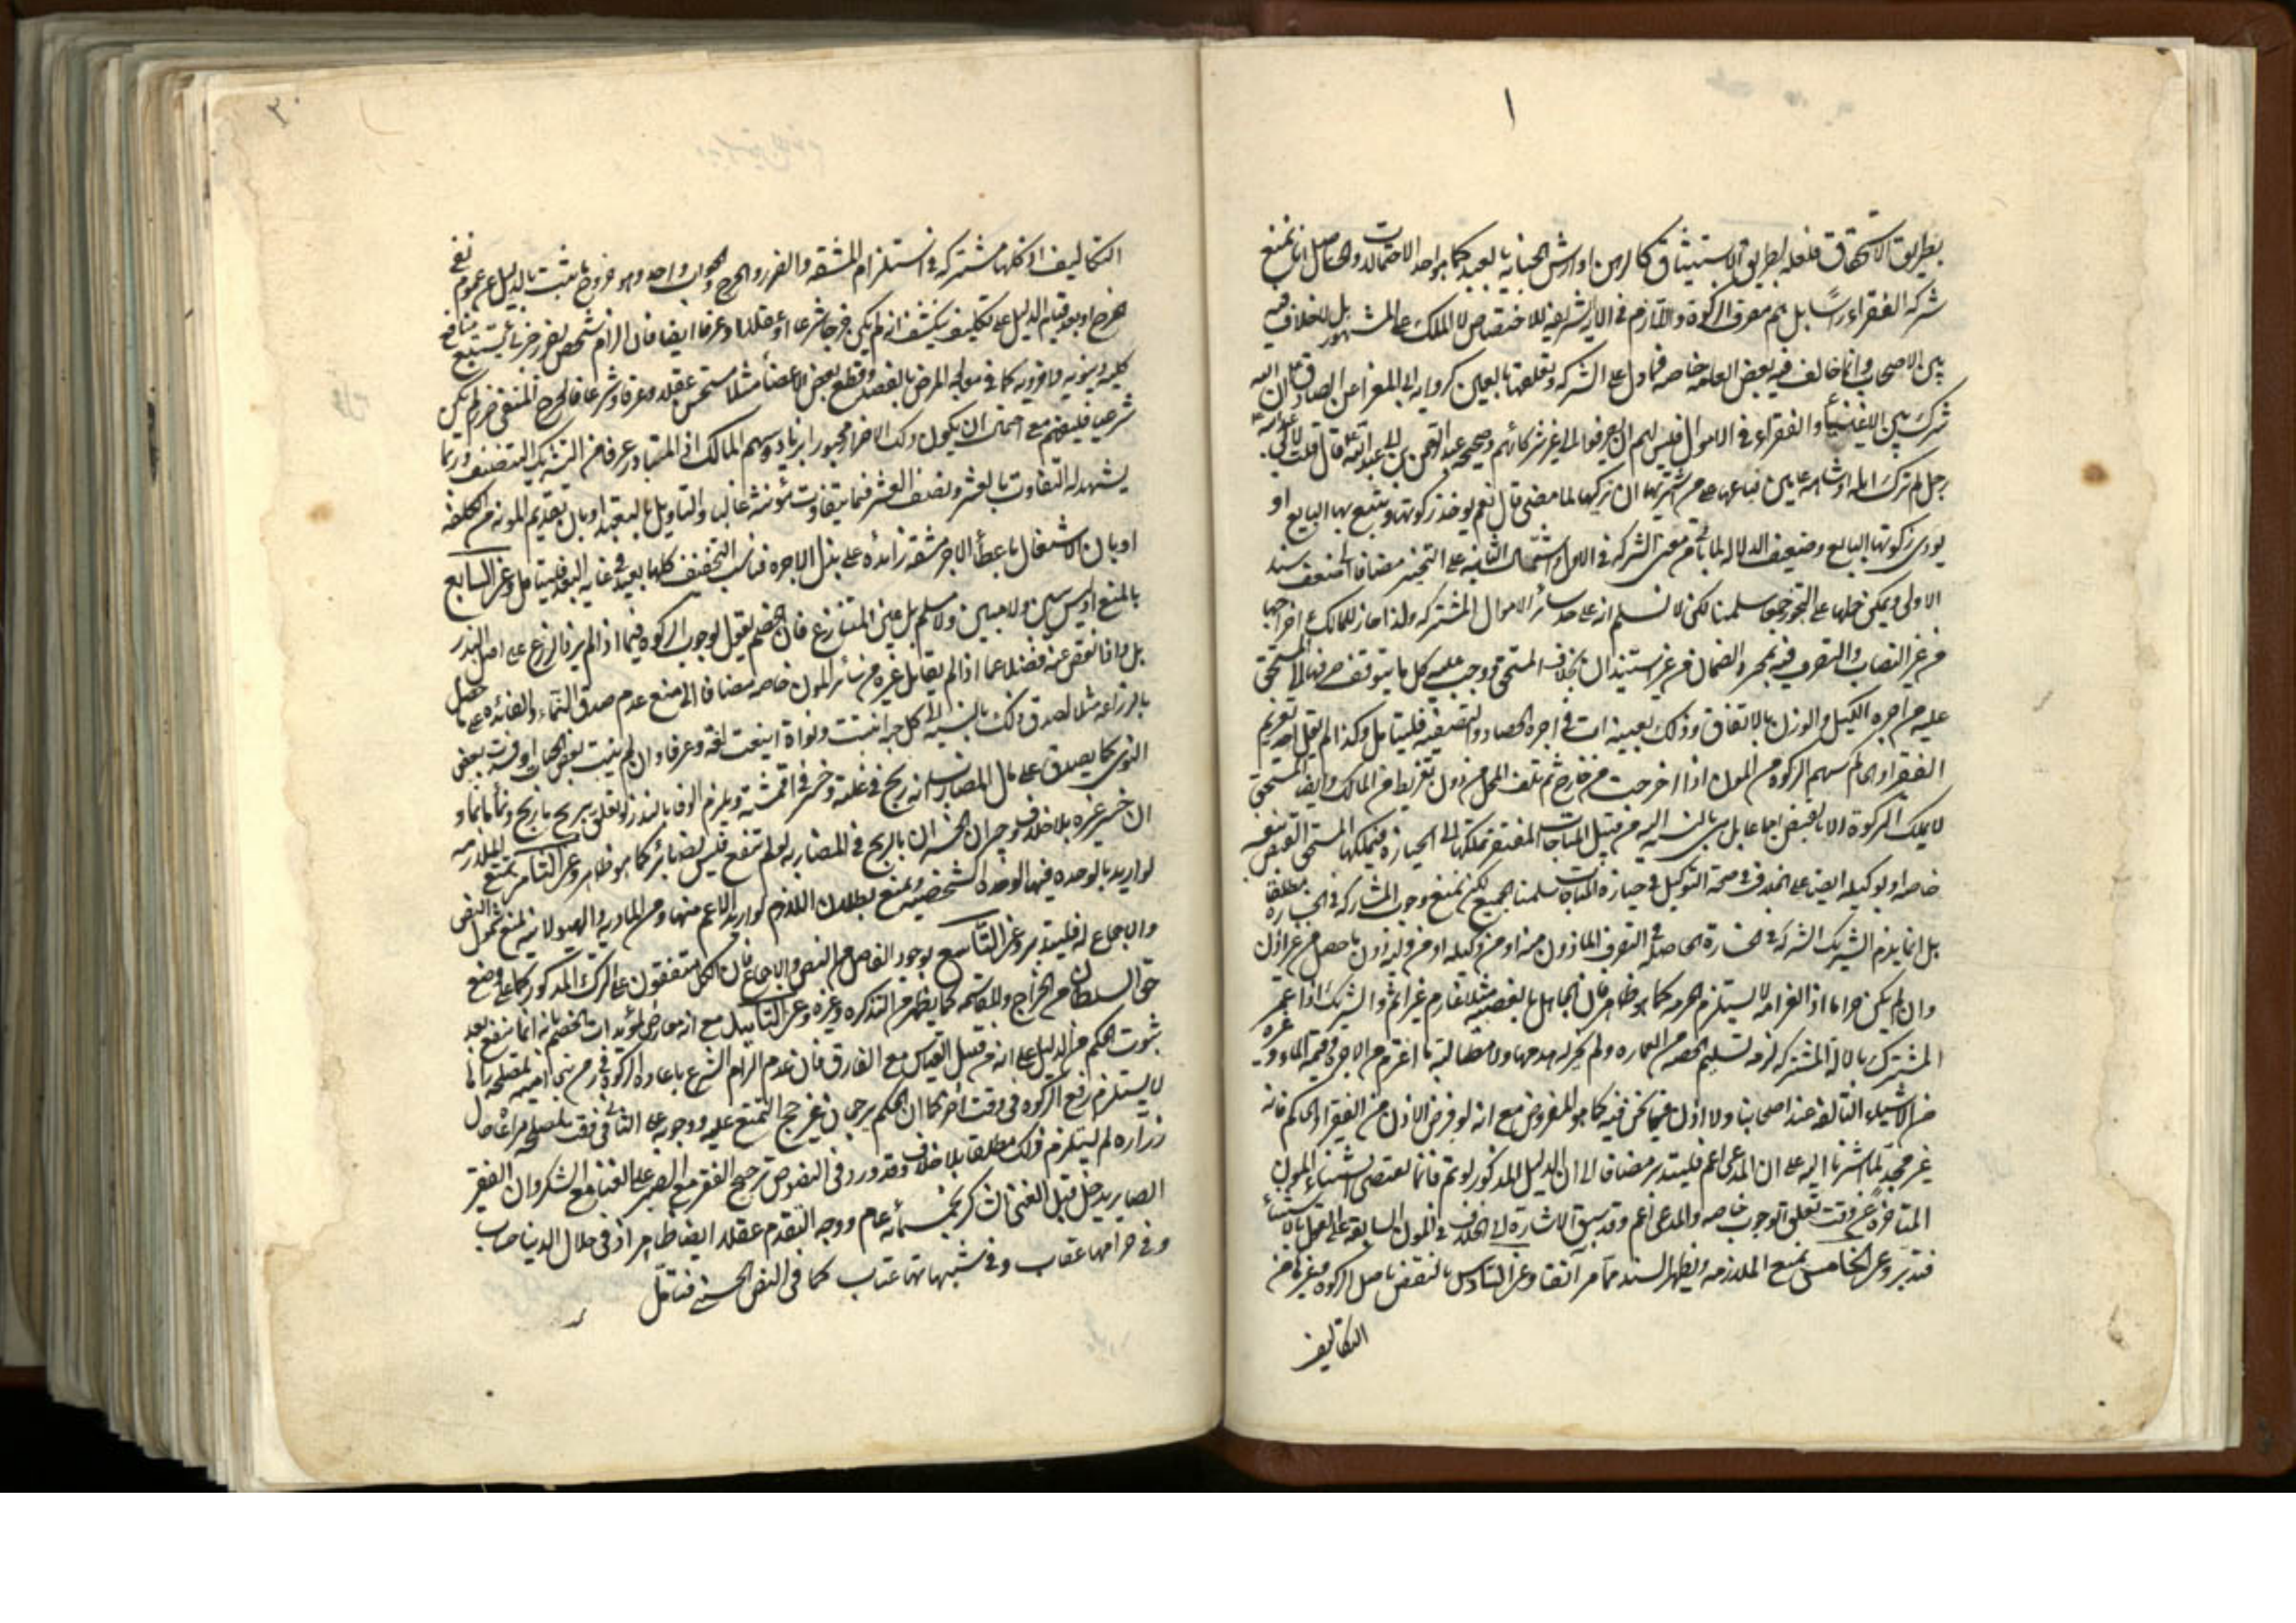 ١
بطريق الاستحقاق فلعله بطريق الاستيثاق كالرهن او ارش الجناية بالعبد كما هو احد الاحتمالات والحاصل انا نمنع
شركة الفقراء راسا بل هم مصرف الزكوة واللام في الآية الشريفة للاختصاص لا الملك على المشهور بل لا خلاف فيه
بين الاصحاب وانما خالف فيه بعض العامة خاصة فما دل على الشركة وتعلقها بالعين كرواية ابي المغرا عن الصادق ع ان الله
شرك بين الاغنياء والفقراء في الاموال فليس لهم ان يصرفوا الى غير شركائهم وصحيحة عبد الرحمن بن ابي عبد الله قال قلت لابي عبد الله ع
رجل لم يزك ابله او شاته عامين فباعها على من اشتريها ان يزكيها لما مضى قال نعم يؤخذ زكوتها ويتبع بها البايع او
يؤدي زكوتها البايع وضعيف الدلالة لما يأتي من معنى الشركة في الاول واشتمال الثانية على التخيير مضافا الى ضعف سند
الاولى ويمكن حملها على التجوز جمعا سلمنا لكن لا نسلم انه على حد سائر الاموال المشتركة ولذا جاز للمالك اخراجها
من غير النصاب والتصرف فيه بمجرد الضمان من غير استيذان بخلاف المستحق ووجب عليه كل ما يتوقف صرفها الى المستحق
عليه من اجرة الكيل والوزن بالاتفاق وذلك بعينه ات في اجرة الحصاد والتصفية فليتامل وكذا لم يقل احد بتغريم
الفقراء والحاكم سهم الزكوة من المؤن اذا اخرجت من خارج ثم تلف المحل من دون تفريط من المالك وايضا المستحق
لا يملك الزكوة الا بالقبض اجماعا بل هي بالنسبة اليه من قبيل المباحات المفتقر تملكها الى الحيازة فيملكها المستحق بالقبض بنفسه
خاصة او بوكيله ايضا على الخلاف في صحة التوكيل في حيازة المباحات سلمنا الجميع لكن نمنع وجوب المشاركة في الخسارة مطلقا
بل انما يلزم الشريك الشركة في الخسارة الحاصلة في التصرف الماذون منه او من وكيله او من وليه دون ما حصل من غير اذن
وان لم يكن حراما اذ الغرامة لا يستلزم الحرمة كما هو ظاهر فان الجاهل بالغصبية مثلا غارم غير اثم والشريك اذا عمر
المشترك بالآلة المشتركة لزمه تسليم الحصة من العمارة ولم يجز له هدمها ولا مطالبة ما اغترم من الاجرة وقيمة الماء وغيره
من الاشياء التالفة عند اصحابنا ولا اذن فيما نحن فيه كما هو المفروض مع انه لو فرض الاذن من الفقير او الحاكم فانه
غير مجد لما اشرنا اليه على ان المدعى اعم فليتدبر مضافا الى ان الدليل المذكور لو تم فانما يقتضي استثناء المؤن
المتاخرة عن وقت تعلق الوجوب خاصة والمدعى اعم وقد سبق الاشارة الى الخلاف في المؤن السابقة على القول بالاستثناء
فتدبر وعن الخامس بمنع الملازمة ويظهر السند مما مر آنفا وعن السادس بالنقض باصل الزكوة وغيرها من
التكاليف
٢
التكاليف اذ كلها مشتركة في استلزام المشقة والضرر والحرج والجواب واحد وهو خروج ما يثبت بالدليل عن عموم نفي
الحرج او بعد قيام الدليل على تكليف ينكشف انه لم يكن حرجا شرعا او عقلا وعرفا ايضا فان الزام شخص بضرر جزئي يستتبع منافع
كلية دنيوية واخروية كما في معالجة المرض بالفصد وقطع بعض الاعضاء مثلا مستحسن عقلا وعرفا وشرعا فالحرج المنفي ضرر لم يكن
شرعيا فليفهم مع احتمال ان يكون ذلك الاضرار مجبورا بزيادة سهم المالك اذ المتبادر عرفا من التشريك التنصيف وربما
يشهد له التفاوت بالعشر ونصف العشر فيما يتفاوت مؤنته غالبا والتاويل بالتعبد او بان تقديم المونة من الكلفة
او بان الاشتغال باعطاء الاجر مشقة زائدة على بذل الاجرة فناسب التخفيف كلها بعيد في غاية البعد فليتامل وعن السابع
بالمنع اذ ليس ببين ولا مبين ولا مسلم بل عين المتنازع فان الخصم يقول بوجوب الزكوة فيما اذا لم يزد الزرع على اصل البذر
بل واذا نقص عنه فضلا عما اذا لم يقابل غيره من سائر المؤن خاصة مضافا الى منع عدم صدق النماء والفائدة على ما حصل
بالزراعة مثلا لصدق ذلك بالنسبة الى كل حبة انبتت ونواة اينعت لغة وعرفا وان لم ينبت بعض الحبات او فسدت بعض
النوى كما يصدق على مال المضاربة انه ربح في غلته وخسر في اقمشته ويلزم الوفاء بالنذر لو تعلق بربح ما ربح ونماء ما نما و
ان خسر غيره بلا خلاف وجبران الخسران بالربح في المضاربة لو لم ينفع فليس بضائر كما هو ظاهر وعن الثامن بمنع الملازمة
لو اريد بالوحدة فيها الوحدة الشخصية ونمنع بطلان اللازم لو اريد الاعم منها ومن المادية والهيولانية لمنع شمول النص
والاجماع له فليتدبر وعن التاسع بوجود الفاصل من النص والاجماع فان الكل متفقون على الترك المذكور كما على وضع
حق السلطان من الخراج والمقاسمة كما يظهر من التذكرة وغيره وعن التاييد مع انه معارض بمؤيدات الخصم بانه انما ينفع بعد
ثبوت الحكم من الدليل على انه من قبيل القياس مع الفارق فان عدم الزام الشرع باعادة الزكوة في زمن لمصلحة رآها
لا يستلزم رفع الزكوة في وقت آخر كما ان الحكم برجحان غير حج التمتع عليه ووجوبه على الثاني في وقت لمصلحة مراعاة حال
زرارة لم يستلزم ذلك مطلقا بلا خلاف وقد ورد في النصوص ترجيح الفقر مع الصبر على الغنا مع الشكر وان الفقير
الصابر يدخل قبل الغني الشاكر بخمسمائة عام ووجه التقدم عقلا ايضا ظاهر اذ في حلال الدنيا حساب
وفي حرامها عقاب وفي شبهاتها عتاب كما في النص الحسن فتامل